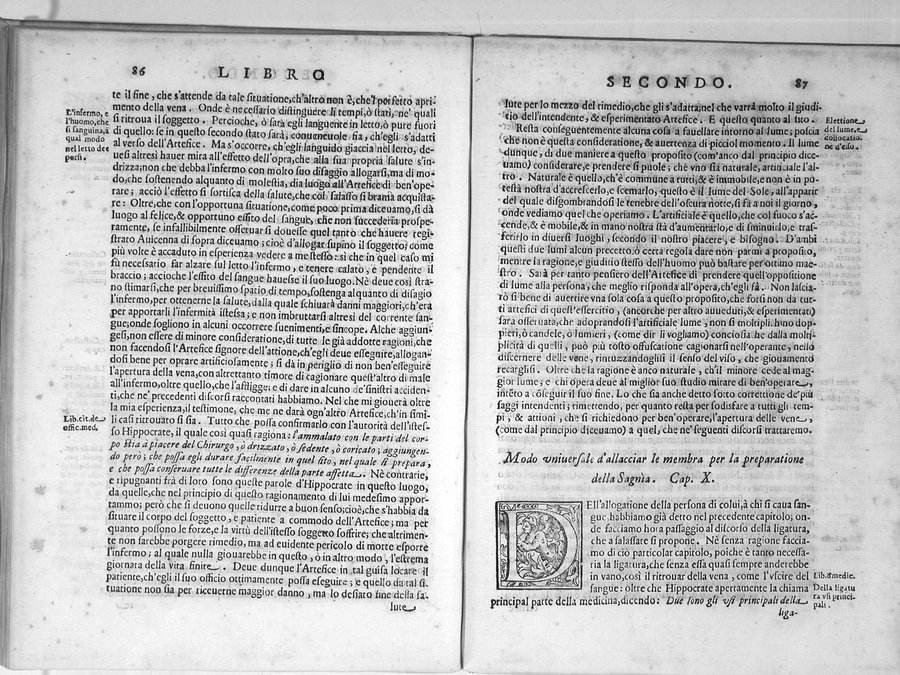 86 LIBRO
te il fine, che s'attende da tale situatione, ch'altro non è, che'l perfetto apri-
mento della vena. Onde è necessario distinguere li tempi, ò stati, ne' quali
si ritroua il soggetto. Percioche, ò sarà egli languente in letto, ò pure fuori
di quello: se in questo secondo stato sarà, conueneuole fia, ch'egli s'adatti
al verso dell'Artefice. Ma s'occorre, ch'egli languido giaccia nel letto, de-
uesi altresi hauer mira all'effetto dell'opra, che alla sua propria salute s'in-
drizza, non che debba l'infermo con molto suo disaggio allogarsi, ma di mo-
do, che sostenendo alquanto di molestia, dia luogo all'Artefice di ben'ope-
rare; acciò l'effetto si sortisca della salute, che col salasso si brama acquista-
re: Oltre, che con l'opportuna situatione, come poco prima diceuamo, si dà
luogo al felice, & opportuno essito del sangue, che non succederia prospe-
ramente, se infallibilmente osseruar si douesse quel tanto che hauere regi-
strato Auicenna di sopra diceuamo; cioè d'allogar supino il soggetto: come
più volte è accaduto in esperienza vedere a me stesso: si che in quel caso mi
fù necessario far alzare sul letto l'infermo, e tenere calato, e pendente il
braccio; accioche l'essito del sangue hauesse il suo luogo. Nè deue così stra-
no stimarsi, che per breuissimo spatio di tempo, sostenga alquanto di disagio
l'infermo, per ottenerne la salute, dalla quale schiuarà danni maggiori, ch'era
per apportarli l'infermità istessa; e non imbruttarsi altresi del corrente san-
gue, onde sogliono in alcuni occorrere suenimenti, e sincope. Alche aggiun-
gesi, non essere di minore consideratione, di tutte le già addotte ragioni, che
non facendosi l'Artefice signore dell'attione, ch'egli deue esseguire, allogan-
dosi bene per oprare artificiosamente; si dà in periglio di non ben'esseguire
l'apertura della vena, con altrettanto timore di cagionare quest'altro di male
all'infermo, oltre quello, che l'affligge: e di dare in alcuno de' sinistri acciden-
ti, che ne' precedenti discorsi raccontati habbiamo. Nel che mi giouerà oltre
la mia esperienza, il testimone, che me ne darà ogn'altro Artefice, ch'in simi-
li casi ritrouato si sia. Tutto che possa confirmarlo con l'autorità dell'istes-
so Hippocrate, il quale così quasi ragiona: l'ammalato con le parti del cor-
po stia à piacere del Chirurgo, ò drizzato, ò sedente, ò coricato; aggiungen-
do però; che possa egli durare facilmente in quel sito, nel quale si prepara,
e che possa conseruare tutte le differenze della parte affetta. Nè contrarie,
e ripugnanti frà di loro sono queste parole d'Hippocrate in questo luogo,
da quelle, che nel principio di questo ragionamento di lui medesimo appor-
tammo; però che si deuono quelle ridurre a buon senso; cioè, che s'habbia da
situare il corpo del soggetto, e patiente a commodo dell'Artefice; ma per
quanto possono le forze, e la virtù dell'istesso soggetto soffrire; che altrimen-
te non sarebbe porgere rimedio, ma ad euidente pericolo di morte esporre
l'infermo; al quale nulla giouarebbe in questo, ò in altro modo, l'estrema
giornata della vita finire. Deue dunque l'Artefice in tal guisa locare il
patiente, ch'egli il suo officio ottimamente possa eseguire; e quello da tal si-
tuatione non sia per riceuerne maggior danno, ma lo desiato fine della sa-
lute
L'infermo, e
l'huomo, che
si sanguina, à
qual modo
nel letto de
porsi.
Lib. cit. de
offic. med.
SECONDO. 87
lute per lo mezzo del rimedio, che gli s'adatta; nel che varrà molto il giudi-
tio dell'intendente, & esperimentato Artefice. E questo quanto al sito.
Resta conseguentemente alcuna cosa a fauellare intorno al lume; poscia
che non è questa consideratione, & auertenza di picciol momento. Il lume
dunque, di due maniere a questo proposito (com'anco dal principio dice-
uamo) considerare, e prendere si puole; che vno sia naturale, artificiale l'al-
tro. Naturale è quello, ch'è commune a tutti; & è immobile, e non è in po-
testà nostra d'accrescerlo, e scemarlo, questo è il lume del Sole, all'apparir
del quale disgombrandosi le tenebre dell'oscura notte, si fà a noi il giorno,
onde vediamo quel che operiamo. L'artificiale è quello, che col fuoco s'ac-
cende, & è mobile, & in mano nostra stà d'aumentarlo, e di sminuirlo, e tras-
ferirlo in diuersi luoghi, secondo il nostro piacere, e bisogno. D'ambi
questi due lumi alcun precetto, ò certa regola dare non parmi a proposito,
mentre la ragione, e giuditio stesso dell'huomo può bastare per ottimo mae-
stro. Sarà per tanto pensiero dell'Artefice di prendere quell'oppositione
di lume alla persona, che meglio risponda all'opera, ch'egli fà. Non lascia-
rò sì bene di auertire vna sola cosa a questo proposito, che forsi non da tut-
ti artefici di quest'essercitio, (ancorche per altro auueduti, & esperimentati)
sara osseruata, che adoprandosi l'artificiale lume, non si moltiplichino dop-
pieri, ò candele, ò lumieri, (come dir li vogliamo) conciosia che dalla molti-
plicità di quelli, può più tosto offuscatione cagionarsi nell'operante, nello
discernere delle vene, rintuzzandoglisi il senso del viso, che giouamento
recarglisi. Oltre che la ragione è anco naturale, ch'il minore cede al mag-
gior lume; e chi opera deue al miglior suo studio mirare di ben'operare,
inteto à conseguir il suo fine. Lo che sia anche detto sotto correttione de' più
saggi intendenti; rimettendo, per quanto resta per sodisfare a tutti gli tem-
pi, & attioni, che si richiedono per l'operare, nell'apertura delle vene,
(come dal principio diceuamo) a quel, che ne' seguenti discorsi trattaremo.
Elettione
del lume, e
collocatio-
ne d'esso.
Modo vniuersale d'allacciar le membra per la preparatione
della Sagnia. Cap. X.
DEll'allogatione della persona di colui, à chi si caua san-
gue, habbiamo già detto nel precedente capitolo; on-
de facciamo hora passaggio al discorso della ligatura,
che a salassare si propone. Nè senza ragione faccia-
mo di ciò particolar capitolo, poiche è tanto necessa-
ria la ligatura, che senza essa quasi sempre anderebbe
in vano, così il ritrouar della vena, come l'vscire del
sangue: oltre che Hippocrate apertamente la chiama
principal parte della medicina, dicendo: Due sono gli vsi principali della
liga-
Lib. 6 medic.
Della ligatu
ra vsi princi-
pali.